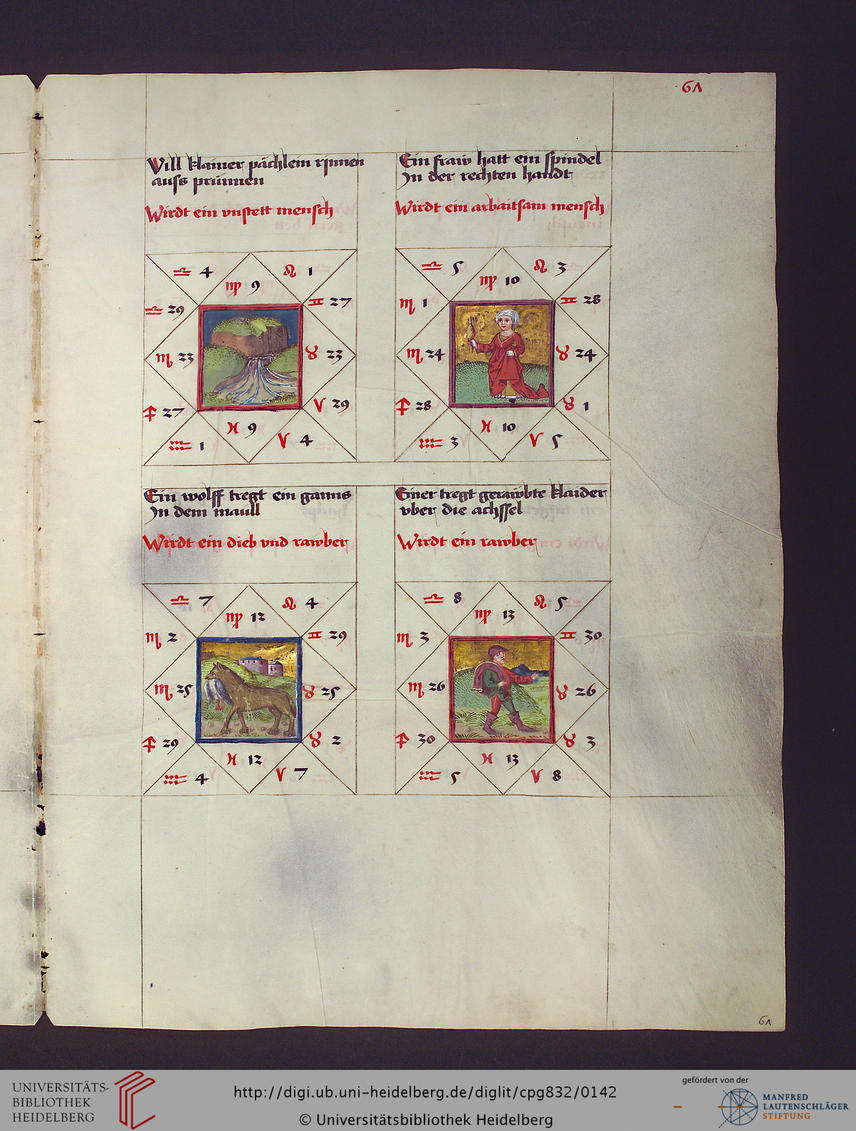 61
Vill klainer pächlein rinnen
auss prünnen
Wirdt ein vnstett mensch
♎ 4
♍ 9
♌ 1
♎ 29
♊ 27
♏ 23
♉ 23
♐ 27
♈ 29
♒ 1
♓ 9
♈ 4
Ein fraw hatt ein spindel
In der rechten handt
Wirdt ein arbaitsam mensch
♎ 5
♍ 10
♌ 3
♏ 1
♊ 28
♏ 24
♉ 24
♐ 28
♉ 1
♒ 3
♓ 10
♈ 5
Ein wolff tregt ein ganns
In dem maull
Wirdt ein dieb vnd rawber
♎ 7
♍ 12
♌ 4
♏ 2
♊ 29
♏ 25
♉ 25
♐ 29
♉ 2
♒ 4
♓ 12
♈ 7
Einer tregt gerawbte klaider
vber die achssel
Wirdt ein rawber
♎ 8
♍ 13
♌ 5
♏ 3
♊ 30
♏ 26
♉ 26
♐ 30
♉ 3
♒ 5
♓ 13
♈ 8
61
UNIVERSITÄTS-
BIBLIOTHEK
HEIDELBERG
http://digi.ub.uni-heidelberg.de/diglit/cpg832/0142
© Universitätsbibliothek Heidelberg
gefördert von der
MANFRED
LAUTENSCHLÄGER
STIFTUNG